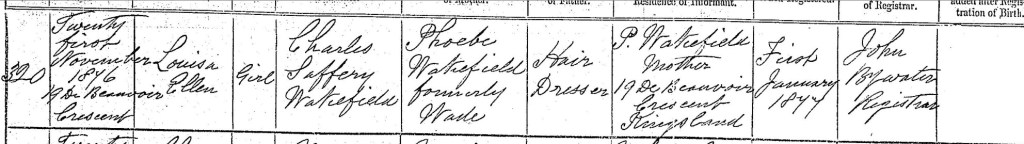 of Father.
Residence of Informant.
of Registrar.
added after Regis-
tration of Birth.
320
Twenty
first
November
1876
19 De Beauvoir
Crescent
Louisa
Ellen
Girl
Charles
Saffery
Wakefield
Phoebe
Wakefield
formerly
Wade
Hair
Dresser
P. Wakefield
Mother
19 De Beauvoir
Crescent
Kingsland
First
January
1877
John
Bywater
Registrar